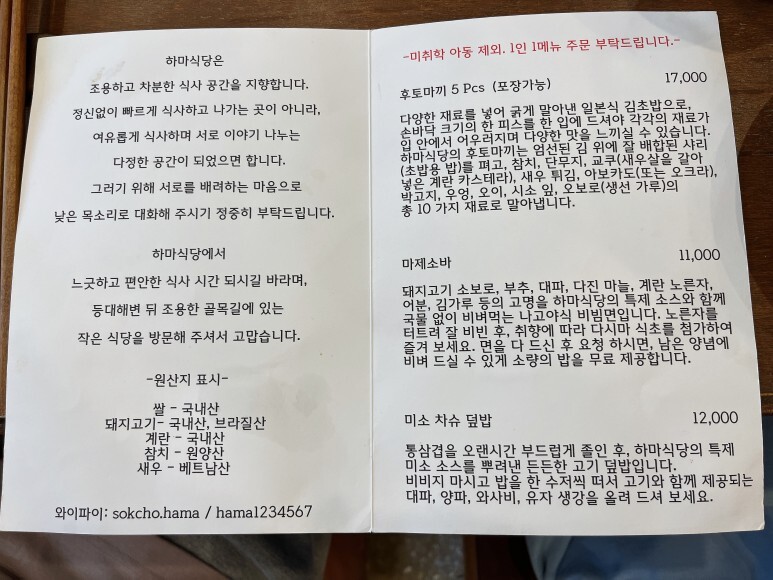 하마식당은
조용하고 차분한 식사 공간을 지향합니다.
정신없이 빠르게 식사하고 나가는 곳이 아니라,
여유롭게 식사하며 서로 이야기 나누는
다정한 공간이 되었으면 합니다.
그러기 위해 서로를 배려하는 마음으로
낮은 목소리로 대화해 주시기 정중히 부탁드립니다.
하마식당에서
느긋하고 편안한 식사 시간 되시길 바라며,
등대해변 뒤 조용한 골목길에 있는
작은 식당을 방문해 주셔서 고맙습니다.
-원산지 표시-
쌀 - 국내산
돼지고기- 국내산, 브라질산
계란 - 국내산
참치 - 원양산
새우 - 베트남산
와이파이: sokcho.hama / hama1234567
-미취학 아동 제외. 1인 1메뉴 주문 부탁드립니다.-
후토마끼 5 Pcs (포장가능) 17,000
다양한 재료를 넣어 굵게 말아낸 일본식 김초밥으로,
손바닥 크기의 한 피스를 한 입에 드셔야 각각의 재료가
입 안에서 어우러지며 다양한 맛을 느끼실 수 있습니다.
하마식당의 후토마끼는 엄선된 김 위에 잘 배합된 샤리
(초밥용 밥)를 펴고, 참치, 단무지, 교쿠(새우살을 갈아
넣은 계란 카스테라), 새우 튀김, 아보카도(또는 오크라),
박고지, 우엉, 오이, 시소 잎, 오보로(생선 가루)의
총 10 가지 재료로 말아냅니다.
마제소바 11,000
돼지고기 소보로, 부추, 대파, 다진 마늘, 계란 노른자,
어분, 김가루 등의 고명을 하마식당의 특제 소스와 함께
국물 없이 비벼먹는 나고야식 비빔면입니다. 노른자를
터트려 잘 비빈 후, 취향에 따라 다시마 식초를 첨가하여
즐겨 보세요. 면을 다 드신 후 요청 하시면, 남은 양념에
비벼 드실 수 있게 소량의 밥을 무료 제공합니다.
미소 차슈 덮밥 12,000
통삼겹을 오랜시간 부드럽게 졸인 후, 하마식당의 특제
미소 소스를 뿌려낸 든든한 고기 덮밥입니다.
비비지 마시고 밥을 한 수저씩 떠서 고기와 함께 제공되는
대파, 양파, 와사비, 유자 생강을 올려 드셔 보세요.